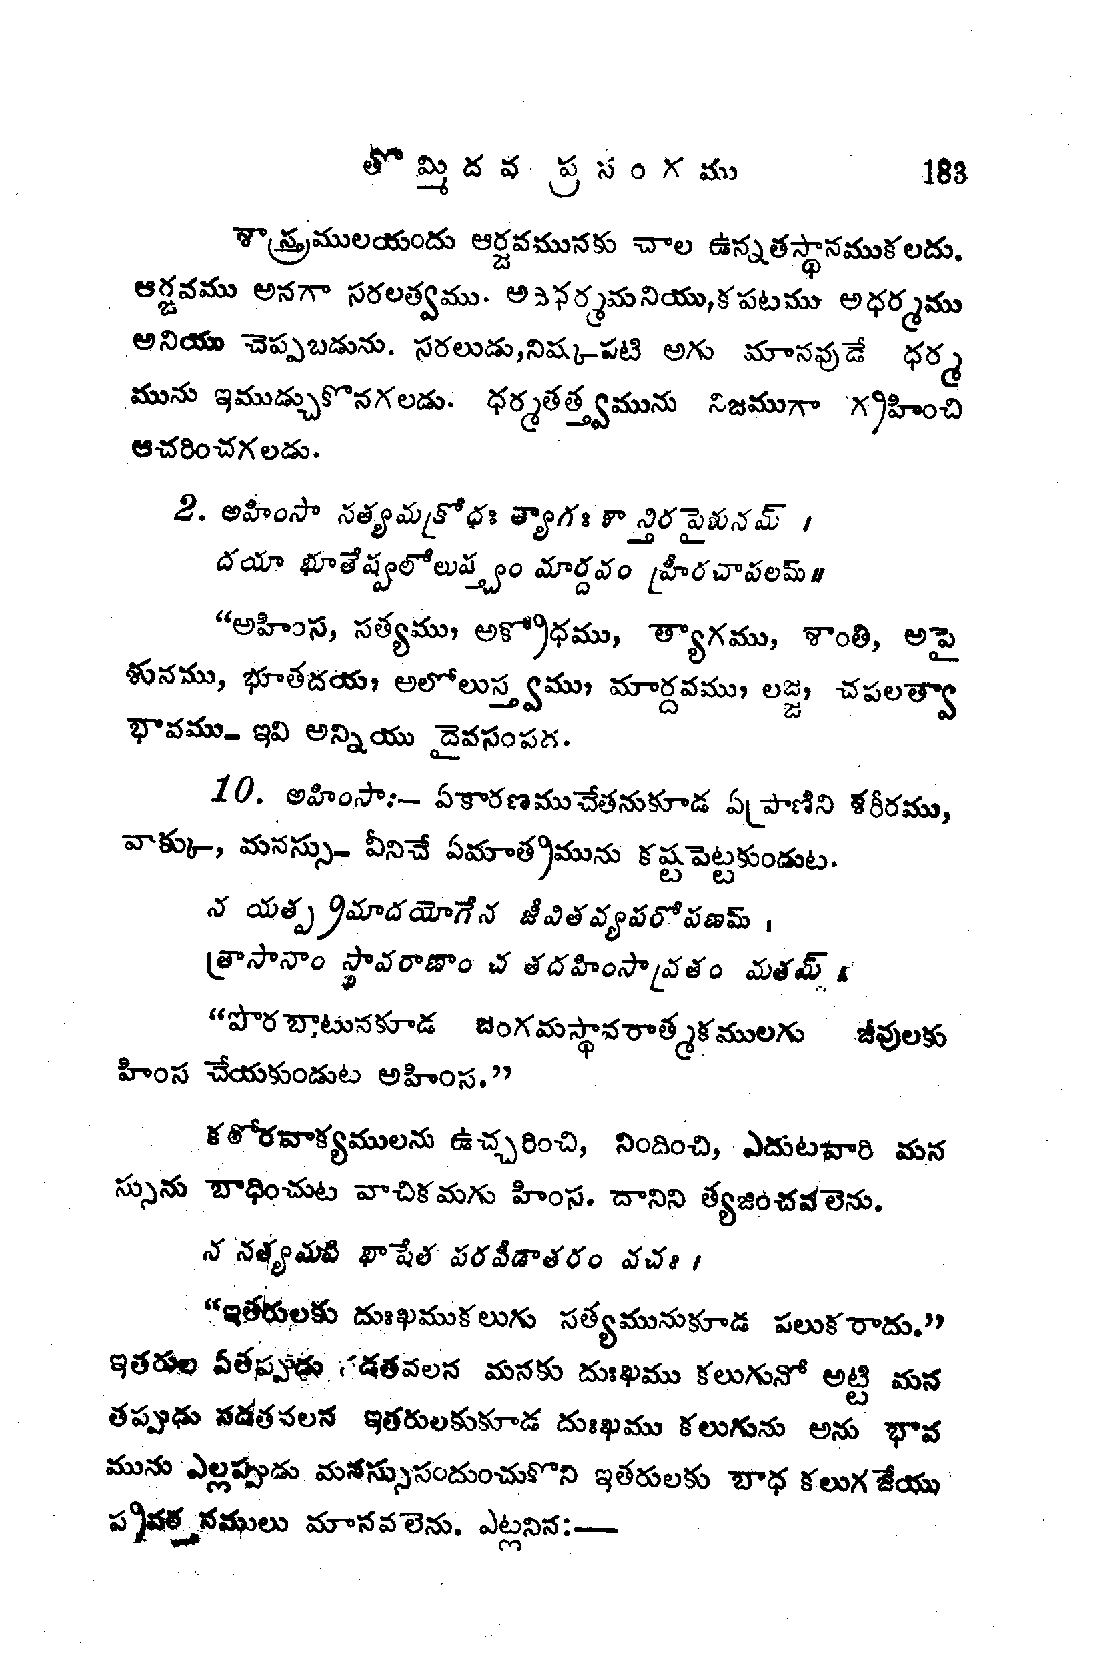 తొమ్మిదవ ప్రసంగము 183
శాస్త్రములయందు ఆర్జవమునకు చాల ఉన్నతస్థానముకలదు.
ఆర్జవము అనగా సరలత్వము. ధర్మమనియు,కపటము అధర్మము
అనియు చెప్పబడును. సరలుడు,నిష్కపటి అగు మానవుడే ధర్మ
మును ఇముడ్చుకొనగలడు. ధర్మతత్త్వమును నిజముగా గ్రహించి
ఆచరించగలడు.
2. అహింసా సత్యమక్రోధః త్యాగః శాన్తిరపైశునమ్ ।
దయా భూతేష్వలోలుప్త్వం మార్దవం హ్రీరచాపలమ్॥
“అహింస, సత్యము, అక్రోధము, త్యాగము, శాంతి, అపై
శునము, భూతదయ, అలోలుప్త్వము, మార్దవము, లజ్జ, చపలత్వా
భావము– ఇవి అన్నియు దైవసంపద.
10. అహింసా:– ఏకారణముచేతనుకూడ ఏప్రాణిని శరీరము,
వాక్కు, మనస్సు– వీనిచే ఏమాత్రమును కష్టపెట్టకుండుట.
న యత్ప్రమాదయోగేన జీవితవ్యపరోపణమ్ ।
త్రాసానాం స్థావరాణాం చ తదహింసావ్రతం మతమ్ ॥
“పొరబాటునకూడ జంగమస్థావరాత్మకములగు జీవులకు
హింస చేయకుండుట అహింస.”
కఠోరవాక్యములను ఉచ్చరించి, నిందించి, ఎదుటవారి మన
స్సును బాధించుట వాచికమగు హింస. దానిని త్యజించవలెను.
న సత్యమపి భాషేత పరపీడాతరం వచః ।
“ఇతరులకు దుఃఖముకలుగు సత్యమునుకూడ పలుకరాదు.”
ఇతరుల ఏతప్పుడు నడతవలన మనకు దుఃఖము కలుగునో అట్టి మన
తప్పుడు నడతవలన ఇతరులకుకూడ దుఃఖము కలుగును అను భావ
మును ఎల్లప్పుడు మనస్సునందుంచుకొని ఇతరులకు బాధ కలుగజేయు
ప్రవర్తనములు మానవలెను. ఎట్లనిన:—